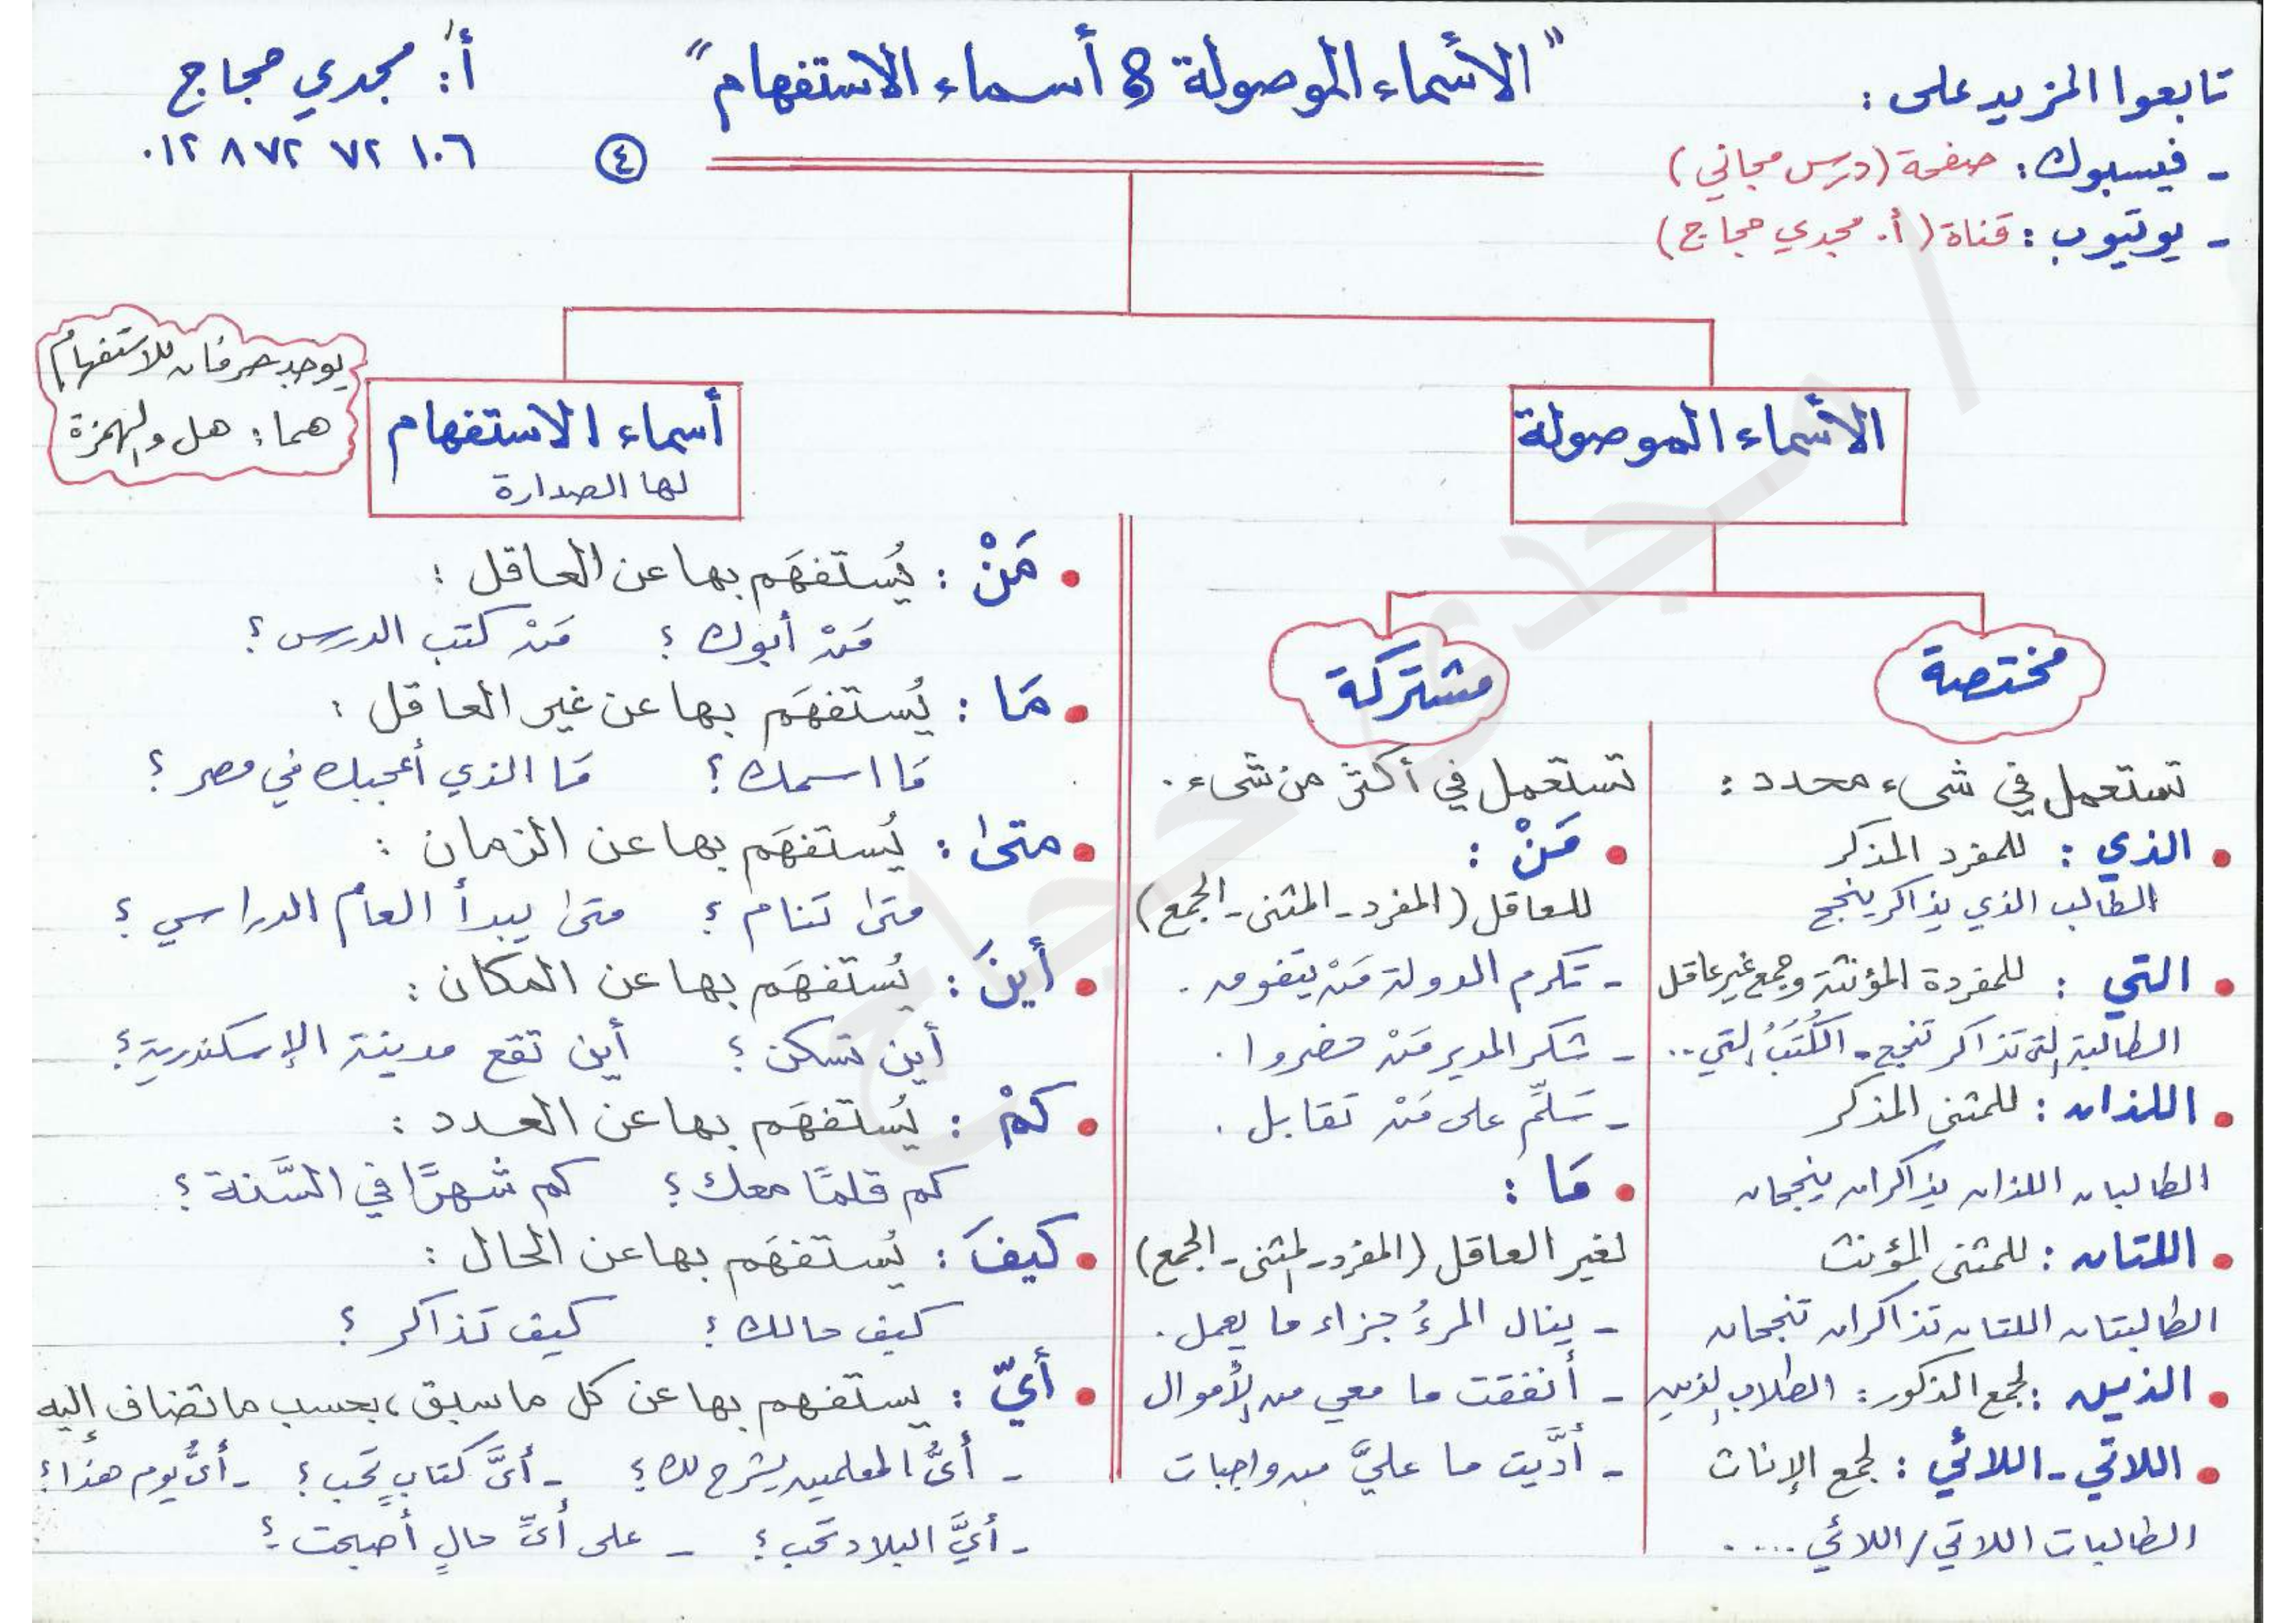 تابعوا المزيد على :
- فيسبوك : صفحة (درس مجاني)
- يوتيوب : قناة (أ. مجدي حجاج)
"الأسماء الموصولة & أسماء الاستفهام"
٤
أ: مجدي حجاج
٠١٢ ٨ ٧٢ ٧٢ ١٠٦
الأسماء الموصولة
مختصة
تستعمل في شيء محدد :
• الذي : للمفرد المذكر
الطالب الذي يذاكر ينجح
• التي : للمفردة المؤنثة وجمع غير عاقل
الطالبة التي تذاكر تنجح - الكُتُبُ التي ..
• اللذان : للمثنى المذكر
الطالبان اللذان يذاكران ينجحان
• اللتان : للمثنى المؤنث
الطالبتان اللتان تذاكران تنجحان
• الذين : لجمع الذكور : الطلاب الذين
• اللاتي - اللائي : لجمع الإناث
الطالبات اللاتي / اللائي ....
مشتركة
تستعمل في أكثر من شيء .
• مَنْ :
للعاقل (المفرد - المثنى - الجمع)
- تكرم الدولة مَنْ يتفوق .
- شكر المدير مَنْ حضروا .
- سَلِّم على مَنْ تقابل .
• مَا :
لغير العاقل (المفرد - المثنى - الجمع)
- ينال المرءُ جزاء ما يعمل .
- أنفقت ما معي من الأموال
- أدَّيت ما عليَّ من واجبات
أسماء الاستفهام
لها الصدارة
يوجد حرفان للاستفهام
هما : هل والهمزة
• مَنْ : يُستفهَم بها عن العاقل :
مَنْ أبوك ؟ مَنْ كتب الدرس ؟
• مَا : يُستفهَم بها عن غير العاقل :
مَا اسمك ؟ مَا الذي أعجبك في مصر ؟
• متىٰ : يُستفهَم بها عن الزمان :
متىٰ تَنام ؟ متىٰ يبدأ العام الدراسي ؟
• أينَ : يُستفهَم بها عن المكان :
أين تسكن ؟ أين تقع مدينة الإسكندرية ؟
• كَمْ : يُستفهَم بها عن العدد :
كم قلمًا معك ؟ كم شهرًا في السَّنة ؟
• كيفَ : يُستفهَم بها عن الحال :
كيف حالك ؟ كيف تذاكر ؟
• أيّ : يستفهم بها عن كل ما سبق ، بحسب ما تضاف إليه
- أيُّ المعلمين يشرح لك ؟ - أيَّ كتابٍ تحب ؟ - أيُّ يوم هذا ؟
- أيَّ البلاد تحب ؟ - على أيِّ حالٍ أصبحت ؟
أ/ مجدى حجاج